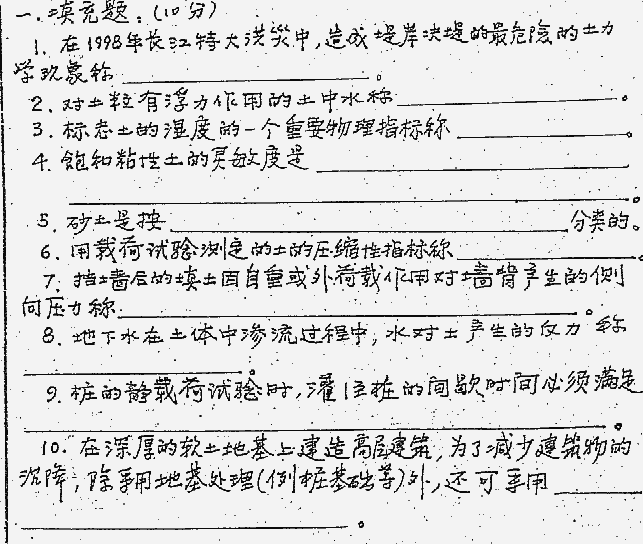 一、填充题:(10分)
1. 在1998年长江特大洪灾中,造成堤岸决堤的最危险的土力
学现象称____________。
2. 对土粒有浮力作用的土中水称____________。
3. 标志土的湿度的一个重要物理指标称____________。
4. 饱和粘性土的灵敏度是____________
____________。
5. 砂土是按____________分类的。
6. 用载荷试验测定的土的压缩性指标称____________。
7. 挡土墙后的填土因自重或外荷载作用对墙背产生的侧
向压力称____________。
8. 地下水在土体中渗流过程中,水对土产生的反力称
____________。
9. 桩的静载荷试验时,灌注桩的间歇时间必须满足
____________。
10. 在深厚的软土地基上建造高层建筑,为了减少建筑物的
沉降,除采用地基处理(例桩基础等)外,还可采用____
____________。